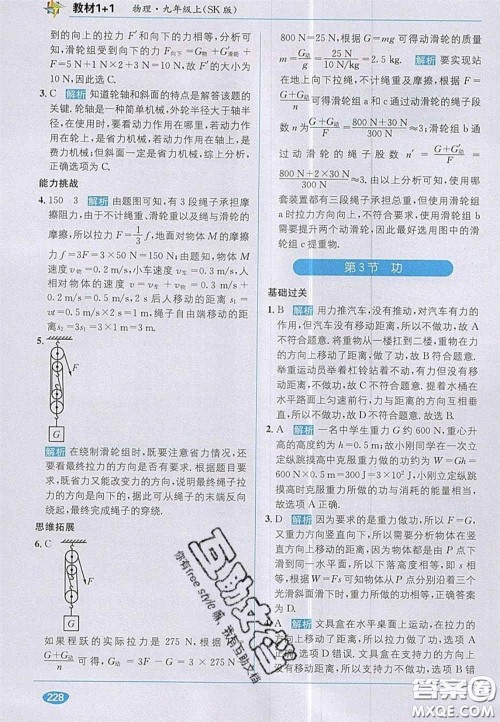 教材1+1 物理·九年级上(SK版)
到的向上的拉力 F′和向下的拉力大小相
等,所以绳子受到的向下的力 F向下=G动+
F′=F+5 N=10 N+5 N=15 N,F=
5 N×2=10 N,故选 C。
3. C 解析 知道轮轴和斜面的特点是解答该题的
关键,轮轴是一种简单机械,外轮半径大于轴半
径,在使用时,要看动力作用在哪里,若动力作
用在轮上,是省力机械,若动力作用在轴上,是
费力机械;但斜面一定是省力机械,综上分析,
正确选项为 C。
能力挑战
4. 150 3 解析 由题图可知,有 3 段绳子承担摩
擦阻力,由于不计绳重、滑轮重以及绳与滑轮的
摩擦,所以拉力 F=1/3f,地面对物体 M 的摩擦
力 f=3F=3×50 N=150 N;由题知,物体 M
速度 v物=0.2 m/s,小车速度 v车=0.3 m/s,
则 2 s 后物体移动的距离 s1=
v物t=0.2 m/s×2 s=0.4 m,绳子自由端移动
的距离 s2=3s1=3×0.4 m=1.2 m,小车移动
的距离 s3=v车t=0.3 m/s×2 s=0.6 m,
5.
F
G
解析 在绕制滑轮组时,既要注意省力情况,还
要看最终拉力的方向是否有要求。根据题目要
求,既省力又能改变力的方向,说明拉力的方向
是向下的,因此可从绳子的末端反向
绕起,最终确定绳子的绕法。
思维拓展
6. C
F
G
如果程跃的实际拉力是 275 N,根据 F=
G+G动/n 可得,G动=3F-G=3×275 N-800 N=
228
25 N,根据 G=mg 可得动滑轮的质量 m=
G动/g=25 N/10 N/kg=2.5 kg。 解析 要实现站
在地上拉绳子,不计绳重和摩擦,根据 F=
G+G动/n 可得滑轮组 a 和 c 通过动滑轮的绳子段
数 n=G+G动/F=800 N+30 N/300 N≈3;滑轮组 b 通
过动滑轮的绳子段数 n′=G+G动′/F=
800 N+2×30 N/300 N≈3,因此,使用哪
套装置都有三段绳子承担总重,但使用滑轮组
a 时拉力方向向上,不符合要求,使用滑轮组 b
的动滑轮重力大,所以最好选用图中的滑
轮组 c 提重物。
第3节 功
基础过关
1. B 解析 用力推汽车,没有推动,对汽车有力的
作用,但汽车没有移动距离,所以不做功,故 A
不符合题意。将重物从一楼扛到二楼,重物在力
的方向上移动了距离,做了功,故 B 符合题意。
举重运动员举着杠铃站着不动,有力但没有移
动距离,不做功,故 C 不符合题意。提着水桶在
水平路面上匀速前行,力与距离的方向垂直,不
做功,故 D 不符合题意。故选 B。
2. A 解析 一名中学生重力 G 约 600 N,重心升
高的高度约为 h=0.5 m;故小刚同学在一次立
定纵跳摸高中克服重力做的功约为 W=Gh=
600 N×0.5 m=3×10² J,小刚同学在一次立定
纵跳摸高中克服重力所做的功与消耗的能量相
当,故选项 A 正确。
3. D 解析 因为要求的是重力做功,所以 F=G,
又重力方向竖直向下,所以需要分析物体在竖
直方向上移动的距离,因为木块由 P 点下滑
到同一水平面,所以下滑的高度关系为 h1=
h2=h3,根据 W=Fs 可知物体从 A、B、C 三个光
滑斜面滑下时,重力所做的功相同,故选项 D
正确。
4. A 解析 文具盒在水平桌面上运动,在拉力方
向上移动了距离,所以拉力做了功,选项 A 正
确、选项 D 错误。文具盒在支持力的方向上没
有移动距离,所以支持力不做功,选项 B 错
互助文档
你有free style嘛,我有互助文档
答案圈